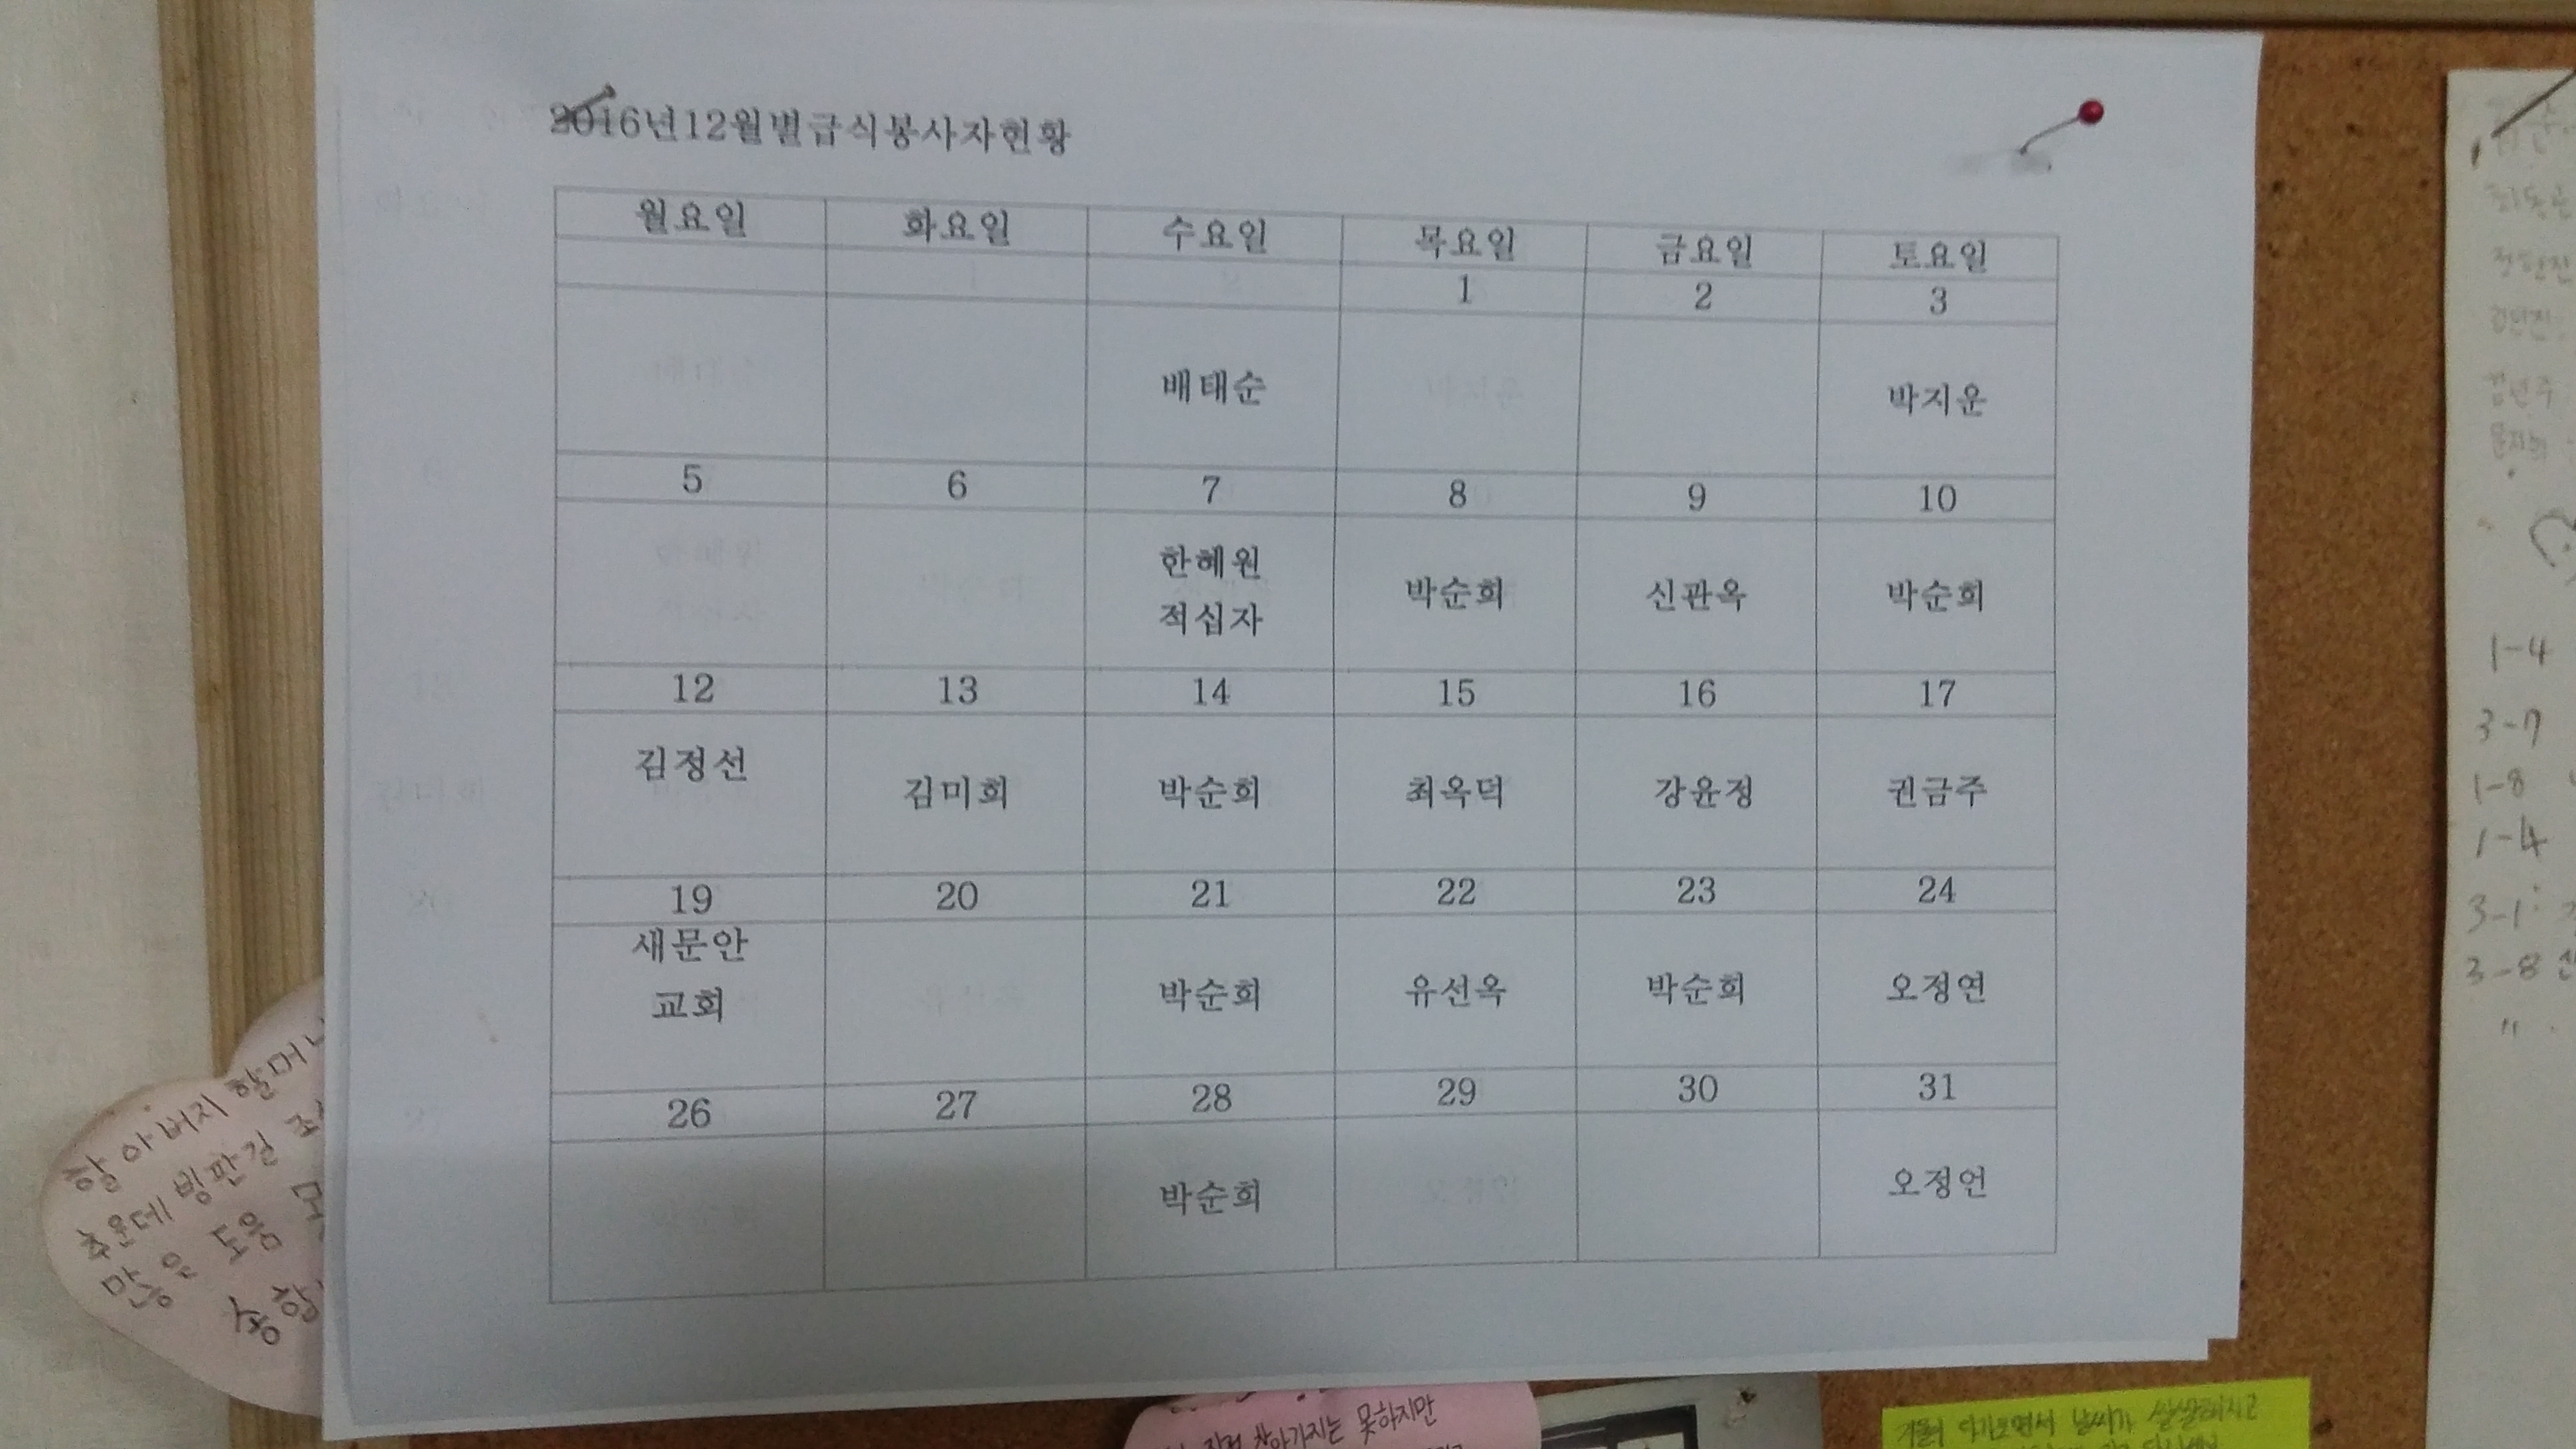 2016년12월별급식봉사자현황
월요일 화요일 수요일 목요일 금요일 토요일
1 2 3
배태순 박지운
5 6 7 8 9 10
한혜원
적십자
박순희 신관옥 박순희
12 13 14 15 16 17
김정선 김미희 박순희 최옥덕 강윤정 권금주
19 20 21 22 23 24
새문안
교회
박순희 유선옥 박순희 오정연
26 27 28 29 30 31
박순희 오정언
할아버지 할머니
추운데 빙판길
많은 도움
찾아가지는 못하지만
날씨가 쌀쌀해지고
1-4
3-7
1-8
1-4
3-1
3-8